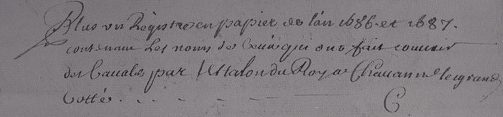 Plus un Registre en papier de l'an 1686 et 1687.
contenant Les noms de ceux qui ont fait couvrir
des Cavales par l'Estalon du Roy a Chavanne le grand
Cotté . . . . . . C